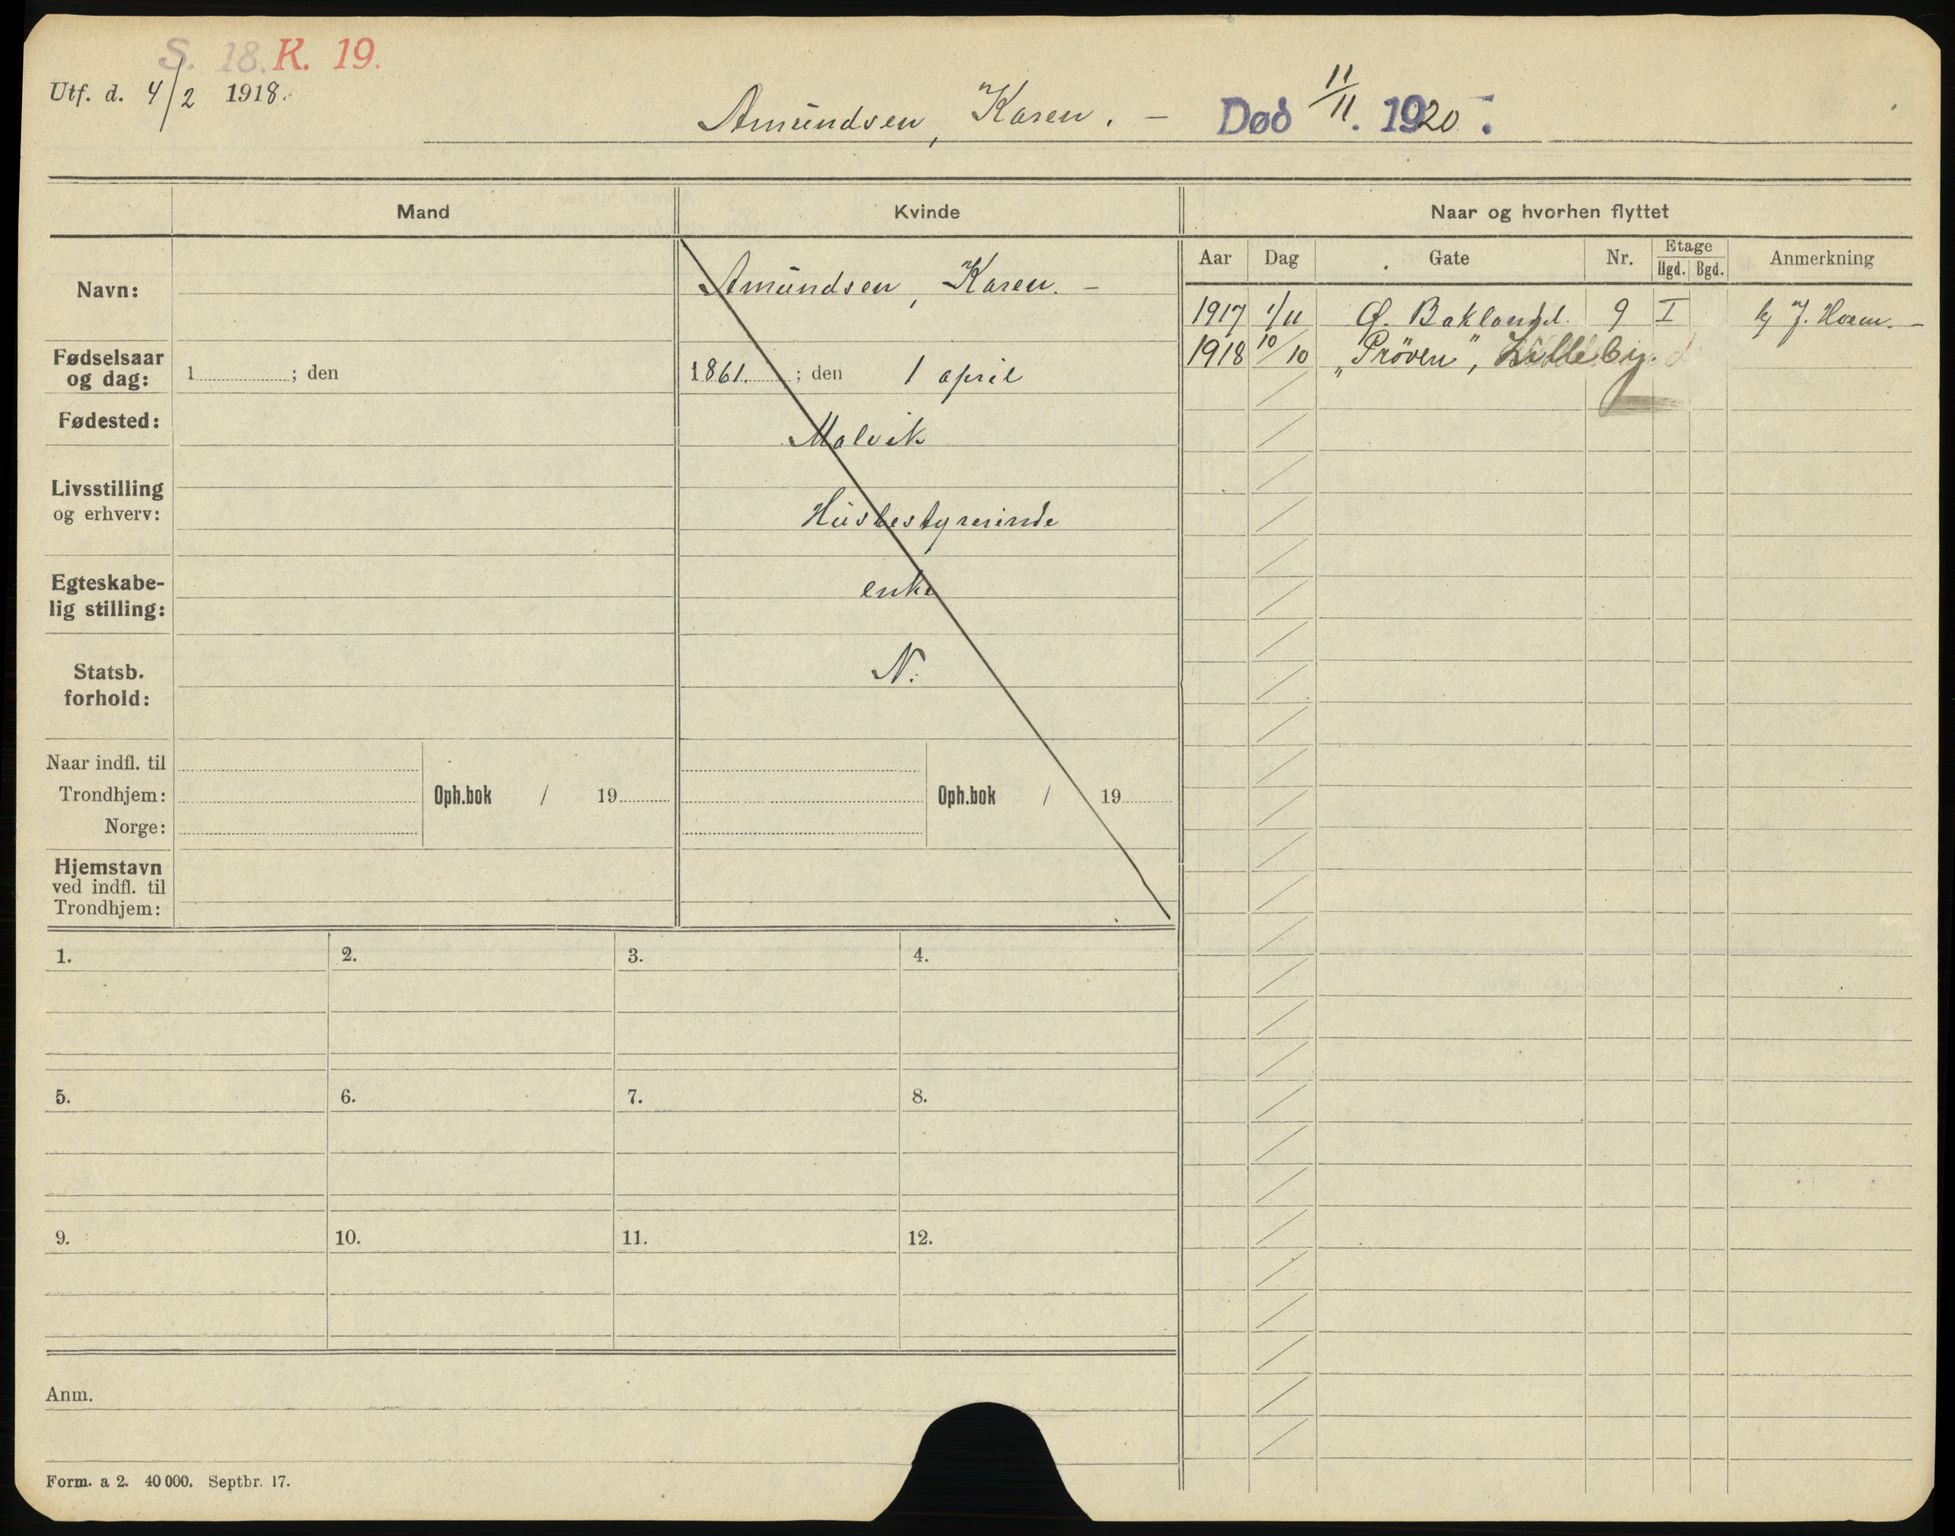 S. 18. K. 19.
Utf. d. 4/2 1918.
Amundsen, Karen. — Død 11/11. 1920.
Mand Kvinde Naar og hvorhen flyttet
Aar Dag Gate Nr. Etage Hgd. Bgd. Anmerkning
Navn: Amundsen, Karen. —
1917 1/11 Ø. Baklandel. 9 I hj J. Hoem. —
1918 10/10 „Prøven”, Lilleby.
Fødselsaar og dag: 1 ; den 1861. ; den 1 april
Fødested: Malvik
Livsstilling og erhverv: Husbestyrerinde
Egteskabe-
lig stilling: enke
Statsb. forhold: N.
Naar indfl. til
Trondhjem: Oph.bok / 19 Oph.bok / 19
Norge:
Hjemstavn
ved indfl. til
Trondhjem:
1. 2. 3. 4.
5. 6. 7. 8.
9. 10. 11. 12.
Anm.
Form. a 2. 40 000. Septbr. 17.